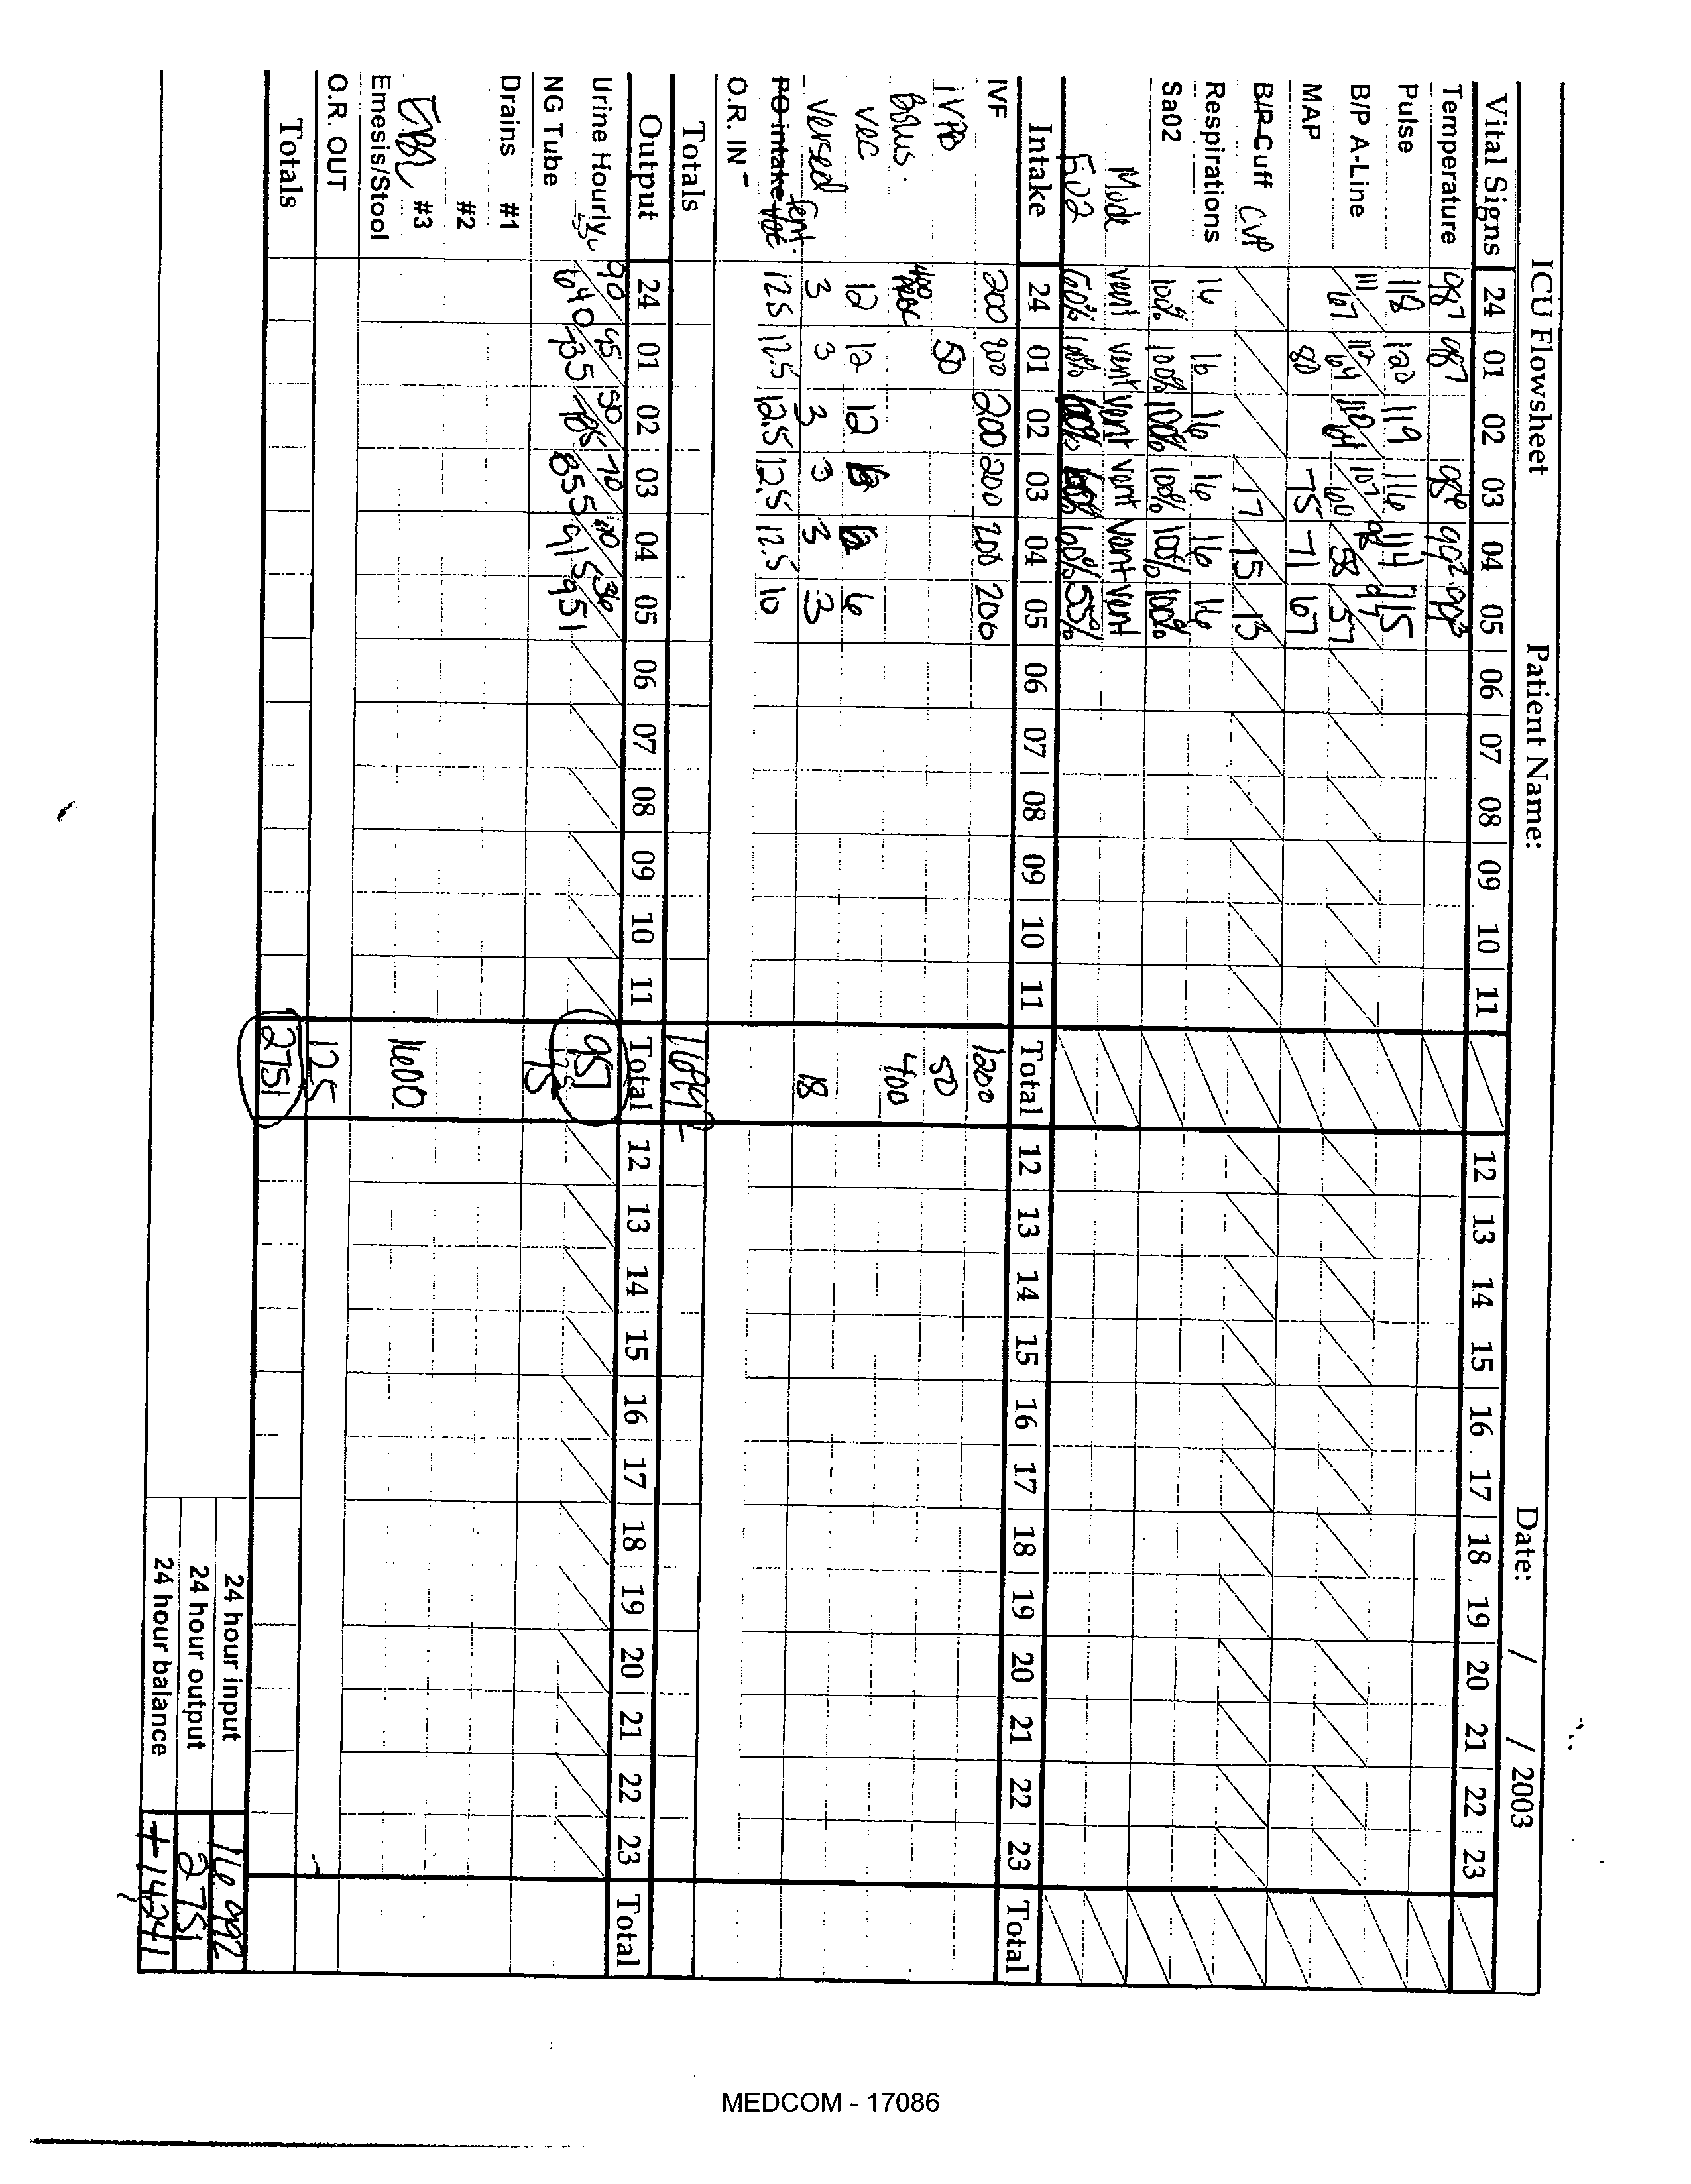 ICU Flowsheet Patient Name: Date: / / 2003
Vital Signs 24 01 02 03 04 05 06 07 08 09 10 11 12 13 14 15 16 17 18 19 20 21 22 23
Temperature 98⁷ 98⁷ 98⁶ 99² 99³
Pulse 118 120 119 116 114 115
B/P A-Line 111/67 112/64 110/64 107/60 98/58 97/57
MAP 80 75 71 67
B/P Cuff CVP 17 15 13
Respirations 16 16 16 16 16 16
Sa02 100% 100% 100% 100% 100% 100%
Mode vent vent vent vent vent vent
60% 100% 60% 55%
Intake 24 01 02 03 04 05 06 07 08 09 10 11 Total 12 13 14 15 16 17 18 19 20 21 22 23 Total
IVF 200 200 200 200 200 200 1200
IVPB 50 50
Bolus 400 400
vec 12 12 12 6
Versed 3 3 3 3 3 3 18
PO intake fent 12.5 12.5 12.5 12.5 12.5 10
O.R. IN -
Totals
Output 24 01 02 03 04 05 06 07 08 09 10 11 Total 12 13 14 15 16 17 18 19 20 21 22 23 Total
Urine Hourly 90/640 95/735 50/785 70/855 36/951 951
NG Tube
Drains #1
#2
EBL #3 1600
Emesis/Stool
O.R. OUT 125
Totals 2751
24 hour input 16992
24 hour output 2751
24 hour balance +14241
MEDCOM - 17086